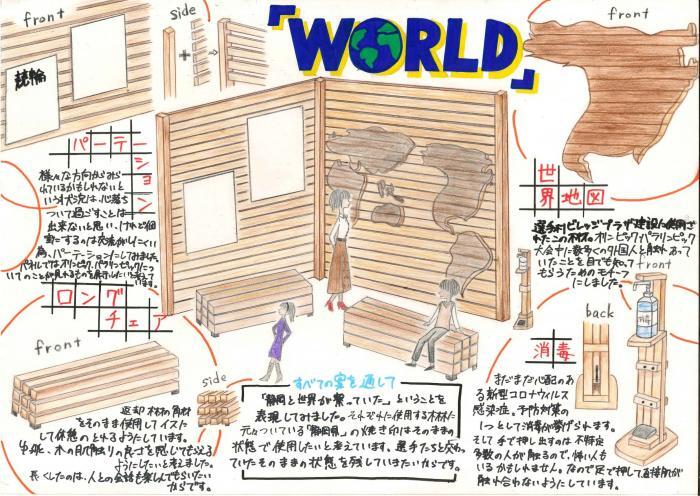 front
side
「WORLD」
front
競輪
パーテーション
様々な方向からみら
れているかもしれないと
いう状況は、心落ち
ついて過ごすことは
出来ないと思い、けれど個
室にするのは交流がしにくい
為、パーテーションにしてみました。
世界地図
選手村ビレッジプラザ建設に使用さ
れたこの木材。オリンピック・パラリンピック
大会中に数多くの外国人と触れあって
いたことを目でも知って
もらうためのモチーフ
にしました。
front
ロングチェア
front
side
返却木材の角材
をそのまま使用してイスと
して休憩のとれるようにしています。
ようにしたいと考えました。
長くしたのは、人との会話も楽しんでもらいたい
からです。
すべての案を通して
「静岡と世界が繋っていた」ということを
表現してみました。それぞれに使用する木材に
元々ついている「静岡県」の焼き印はそのままの
状態で使用したいと考えています。選手たちと交わっ
ていたそのままの状態を残していきたいからです。
back
消毒
まだまだ心配のあ
る新型コロナウィルス
感染症。予防対策の
1つとして消毒が挙げられます。
そして手で押し出すのは不特定
多数の人が触るので、怖い人も
いるかもしれません。なので足で押して直接肌が
触れ合わないようにしています。